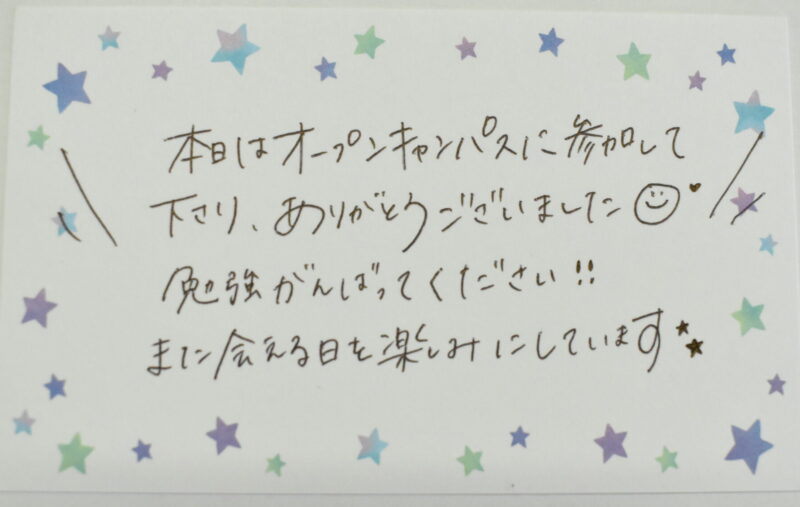 本日はオープンキャンパスに参加して
下さり、ありがとうございました☺♥
勉強がんばってください!!
また会える日を楽しみにしています★★